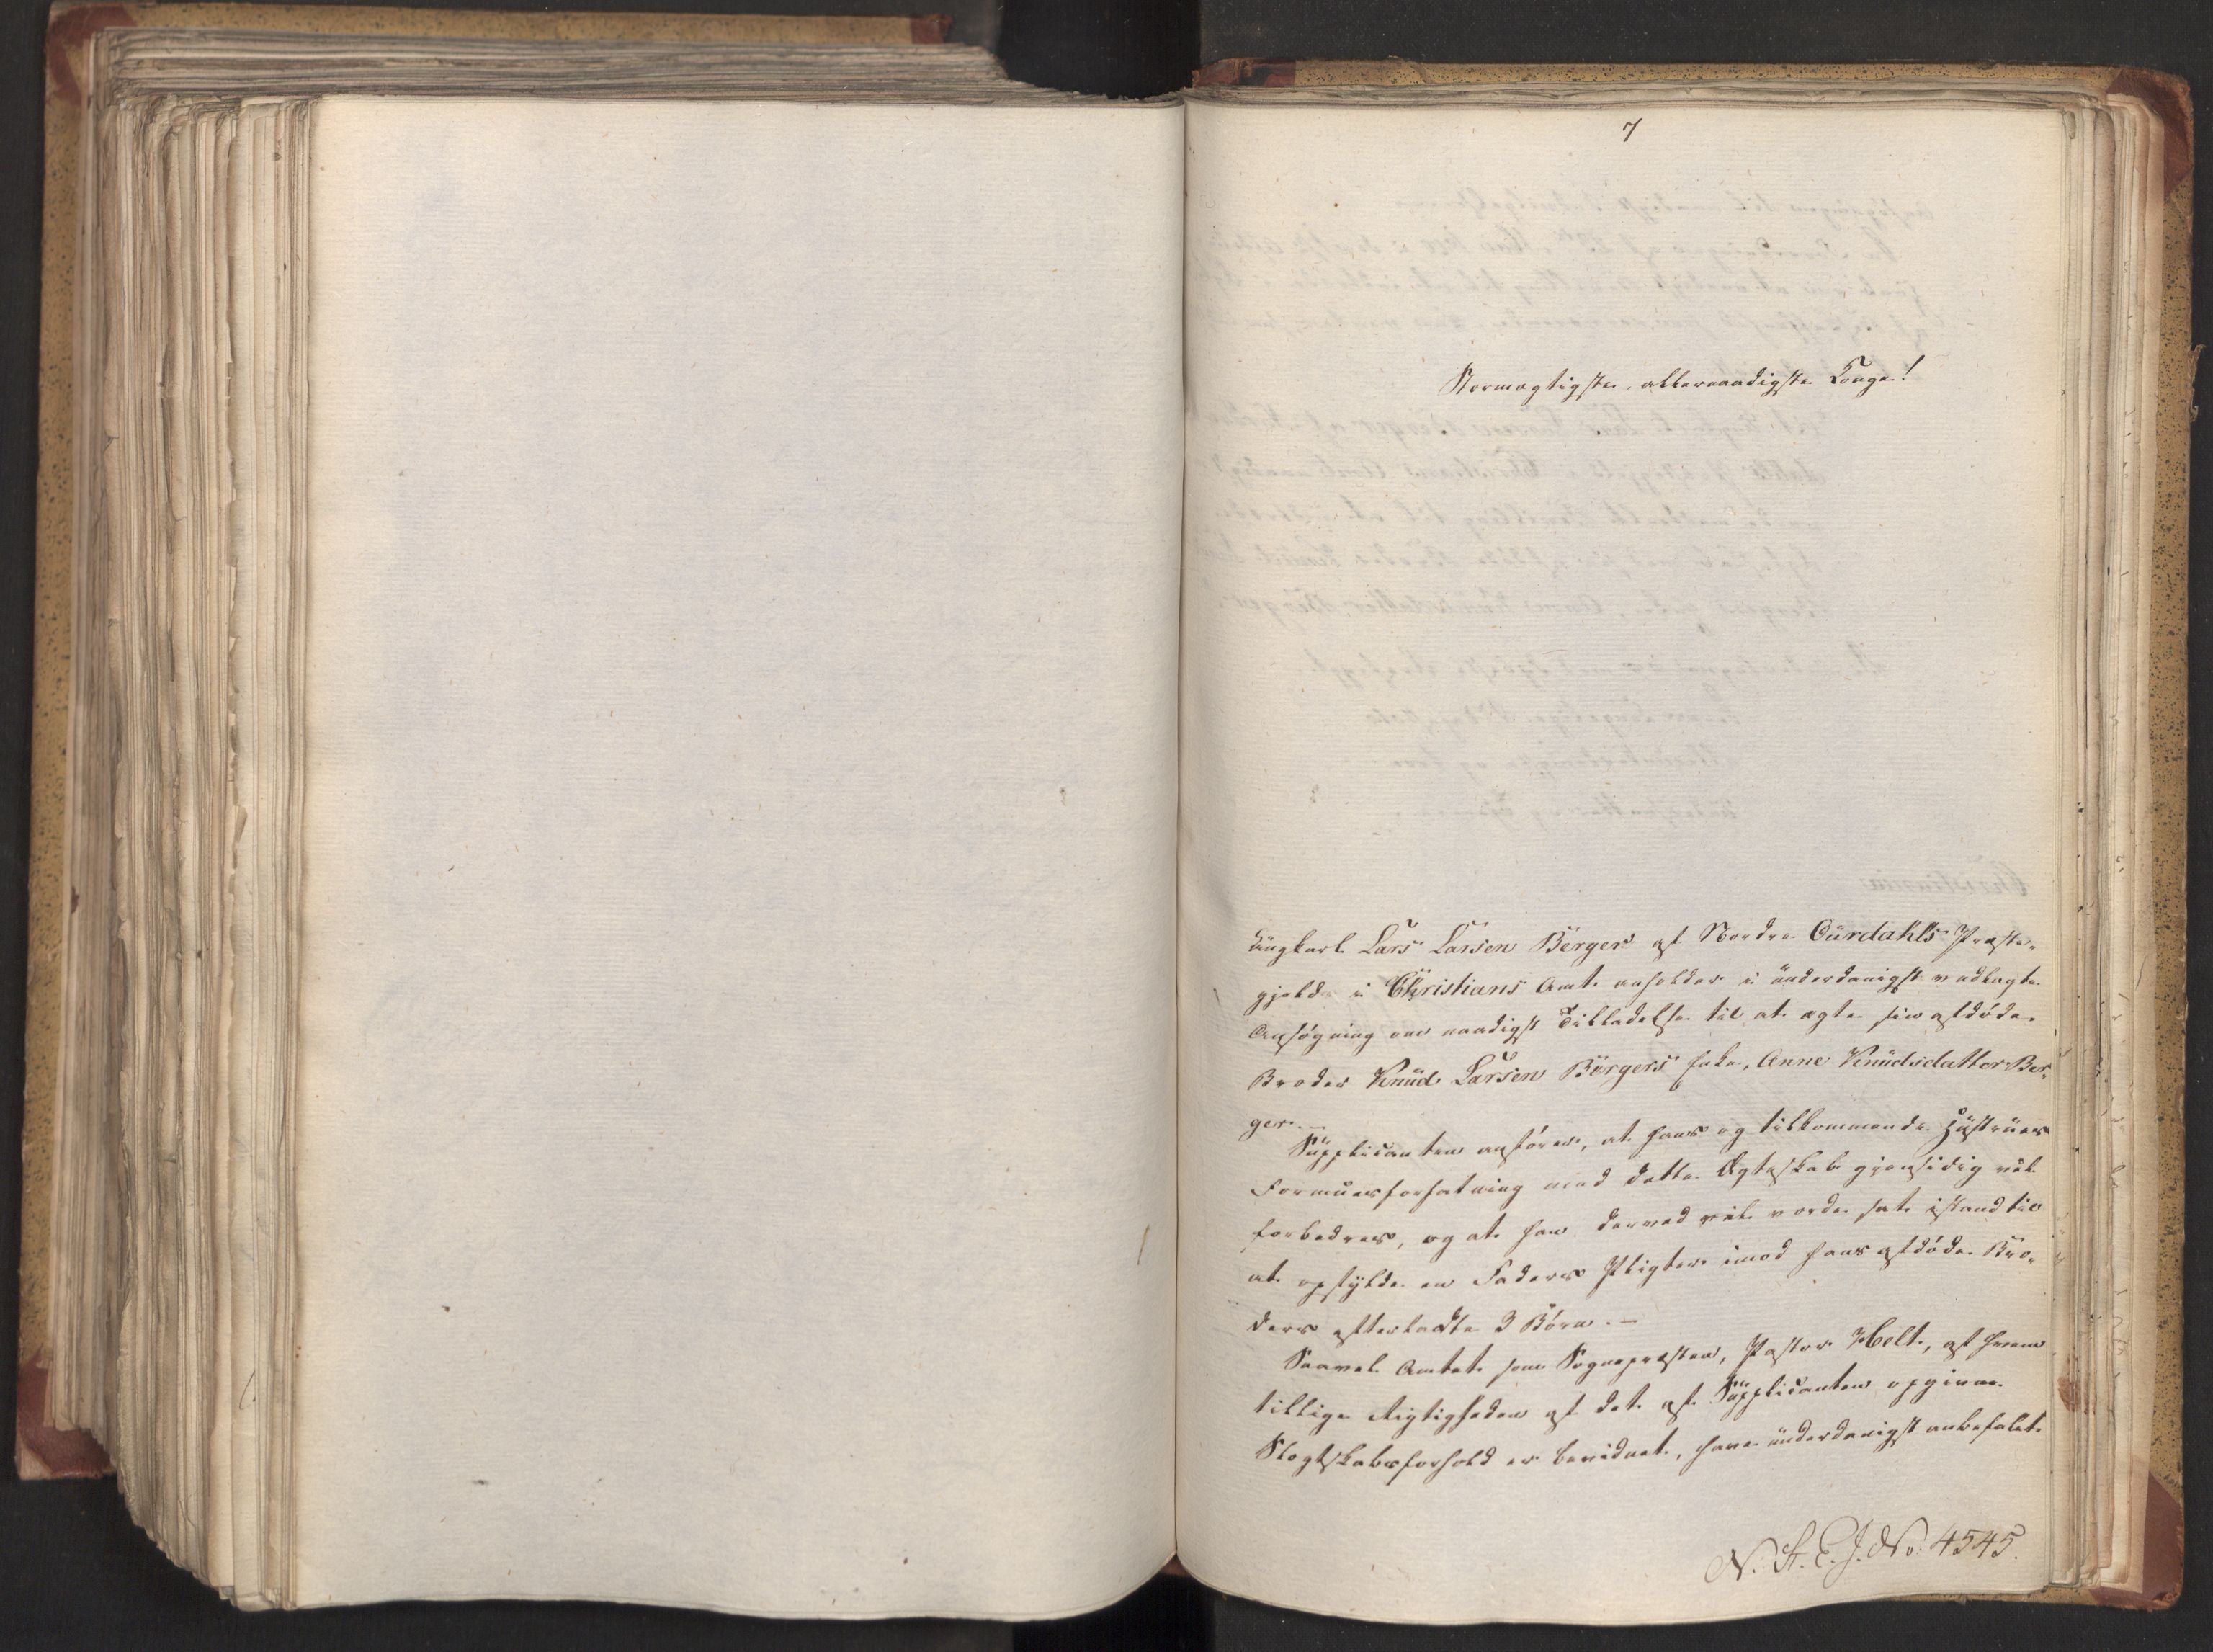 7
Stormægtigste, allernaadigste Konge!
Ungkarl Lars Larsen Berger af Nordre Ourdahls Præste-
gjeld i Christians Amt anholder i underdanigst vedlagte
Ansøgning om naadigst Tilladelse til at ægte sin afdøde
Broder Knud Larsen Bergers Enke, Anne Knudsdatter Ber-
ger.—
Supplicanten anfører, at hans og tilkommende Hustrues
Formuesforfatning med dette Ægteskab gjensidig vil
forbedres, og at han derved vil vorde sat istand til
at opfylde en Faders Pligter imod hans afdøde Bro-
ders efterladte 3 Børn.—
Saavel Amtet som Sognepræsten, Pastor Helt, af hvem
tillige Rigtigheden af det af Supplicanten opgivne
Slægtskabsforhold er bevidnet, have underdanigst anbefalet
N. St. E. J. No: 4545.